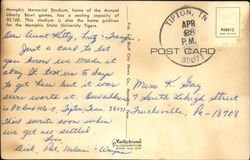 Memphis Memorial Stadium, home of the Annual
Liberty Bowl games, has a seating capacity of
50,160. This stadium is also the home gridiron
for the Memphis State University Tigers.
TIPTON, TN
APR
28
PM
38071
P68612
POST CARD
Dear Aunt Kitty,
Just a card to let
you know we made it
okay. It took us 5 days
to get here but it was
sure worth it. Our address
is PO Box
Tipton, Tenn. 38071
Will write soon when
we get all settled
Love
Dick, Pat, Helen & Wayne
Miss K. Gay
S. Lehigh Street
Frackville, Pa - 18708